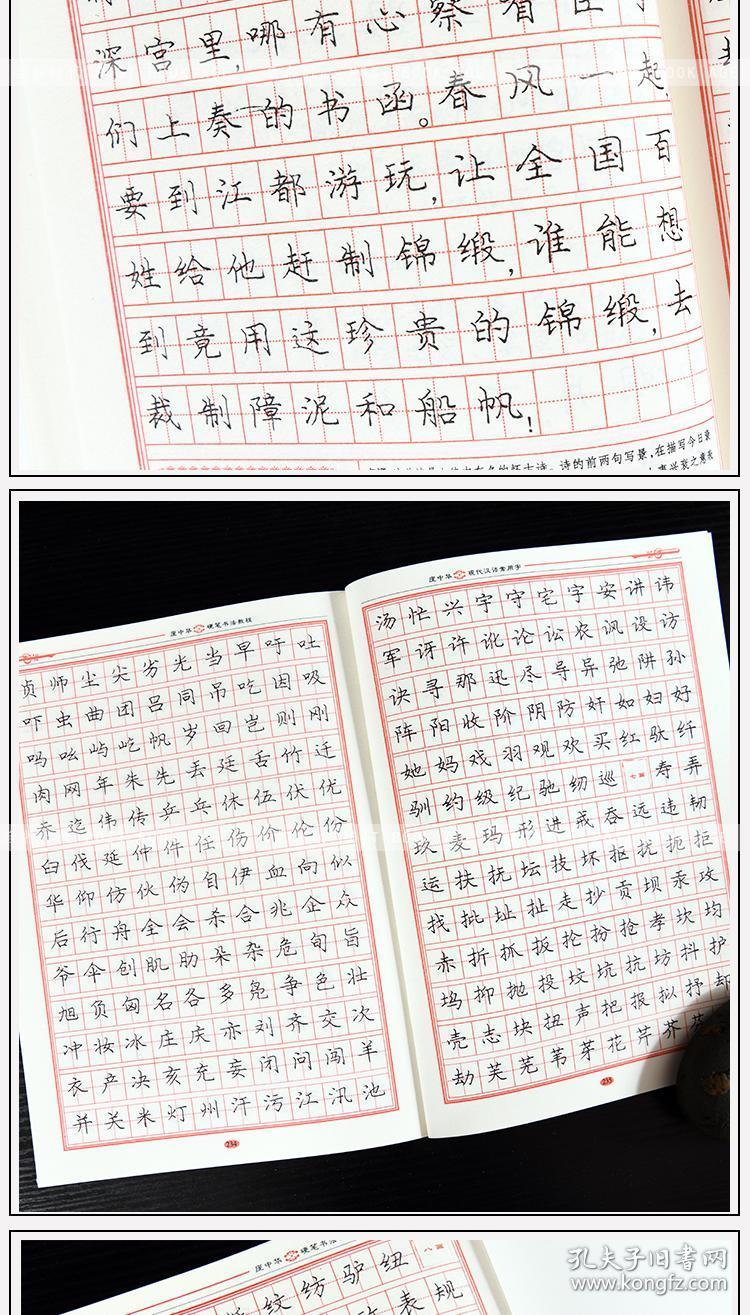 深宫里,哪有心察看
们上奏的书函。春风一起
要到江都游玩,让全国百
姓给他赶制锦缎,谁能想
到竟用这珍贵的锦缎,去
裁制障泥和船帆!
诗的前两句写景,在描写今日衰
庞中华 硬笔书法教程
贞师尘尖劣光当早吁吐
吓虫曲团吕同吊吃因吸
吗吆屿屹帆岁回岂则刚
肉网年朱先丢廷舌竹迁
乔迄伟传乒乓休伍伏优
臼伐延仲件任伤价伦份
华仰仿伙伪自伊血向似
后行舟全会杀合兆企众
爷伞创肌肋朵杂危旬旨
旭负匈名各多凫争色壮
冲妆冰庄庆亦刘齐交次
衣产决亥充妄闭问闯羊
并关米灯州汗污江汛池
234
庞中华 现代汉语常用字
汤忙兴宇守宅字安讲讳
军讶许讹论讼农讽设访
诀寻那迅尽导异弛阱孙
阵阳收阶阴防奸如妇好
她妈戏羽观欢买红驮纤
驯约级纪驰纫巡 七画 寿弄
玖麦玛形进戒吞远违韧
运扶抚坛技坏抠扰扼拒
找批址扯走抄贡坝汞攻
赤折抓扳抡扮抢孝坎均
坞抑抛投坟坑抗坊抖护
壳志块扭声把报拟抒却
劫芙芜苇芽花芹芥
235
庞中华 硬笔书法
八画
纹纺驴纽
表规
孔夫子旧书网
www.kongfz.com